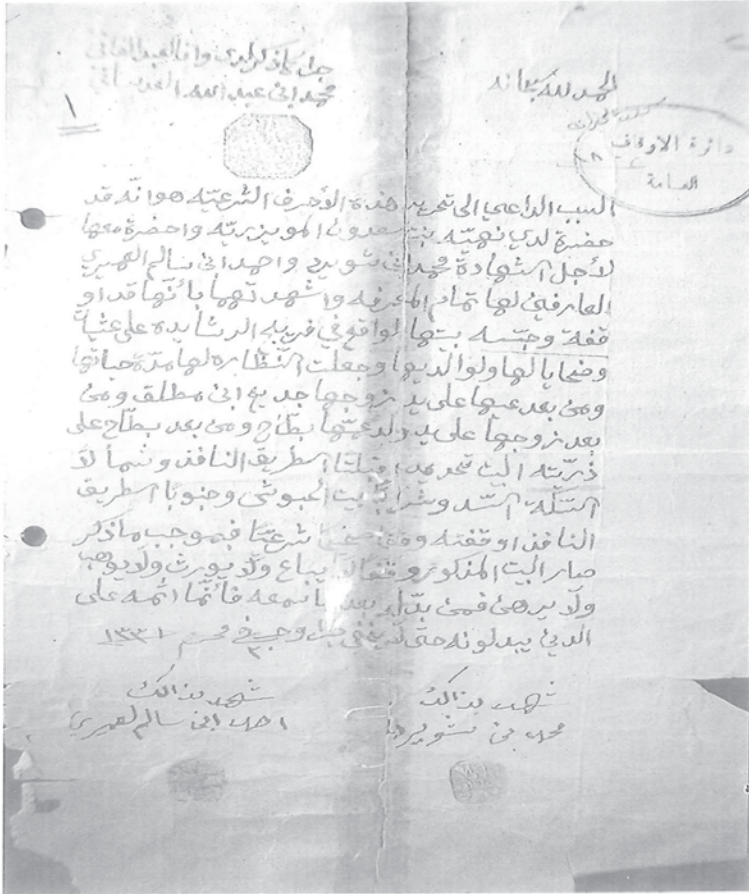 الحمد لله سبحانه
جرى كما ذكر لدي وانا العبد الفاني
محمد ابن عبد الله العدساني
١
دائرة الاوقاف
العامة
السبب الداعي الى تحرير هذه الأحرف الشرعيّه هو انّه قد
حضرة لدي نهيّه بنت سعدون المويزريّه واحضرة معها
لأجل الشهادة محمد ابن شويرد واحمد ابن سالم العميري
العارفين لها تمام المعرفه واشهدتهما بأنّها قد او
قفة وحبّسه بيتها الواقع في فريج الرشايده على عشيّاة
وضحايا لها ولوالديها وجعلت النّظاره لها مدّة حياتها
ومن بعد عينها على يد زوجها جديع ابن مطلق ومن
بعد زوجها على يد ولد عمّها بطّاح ومن بعد بطّاح على
ذرّيّته البيت تحديده قبلتًا اطريق النافذ وشمالًا
السّد وشرقًا بيت الحبوشي وجنوبًا اطريق
النافذ اوقفته وقفًا شرعيًّا فبموجب ما ذكر
صار البيت المذكور وقفًا لا يباع ولا يورث ولا يوهب
ولا يرهن فمن بدّله بعد ما سمعه فانّما اثمه على
الذين يبدلونه حتى لا يخفى جرى وحرر في ٣ محرم ١٣٣١
شهد بذالك
محمد بن شويرد
شهد بذالك
احمد ابن سالم العميري